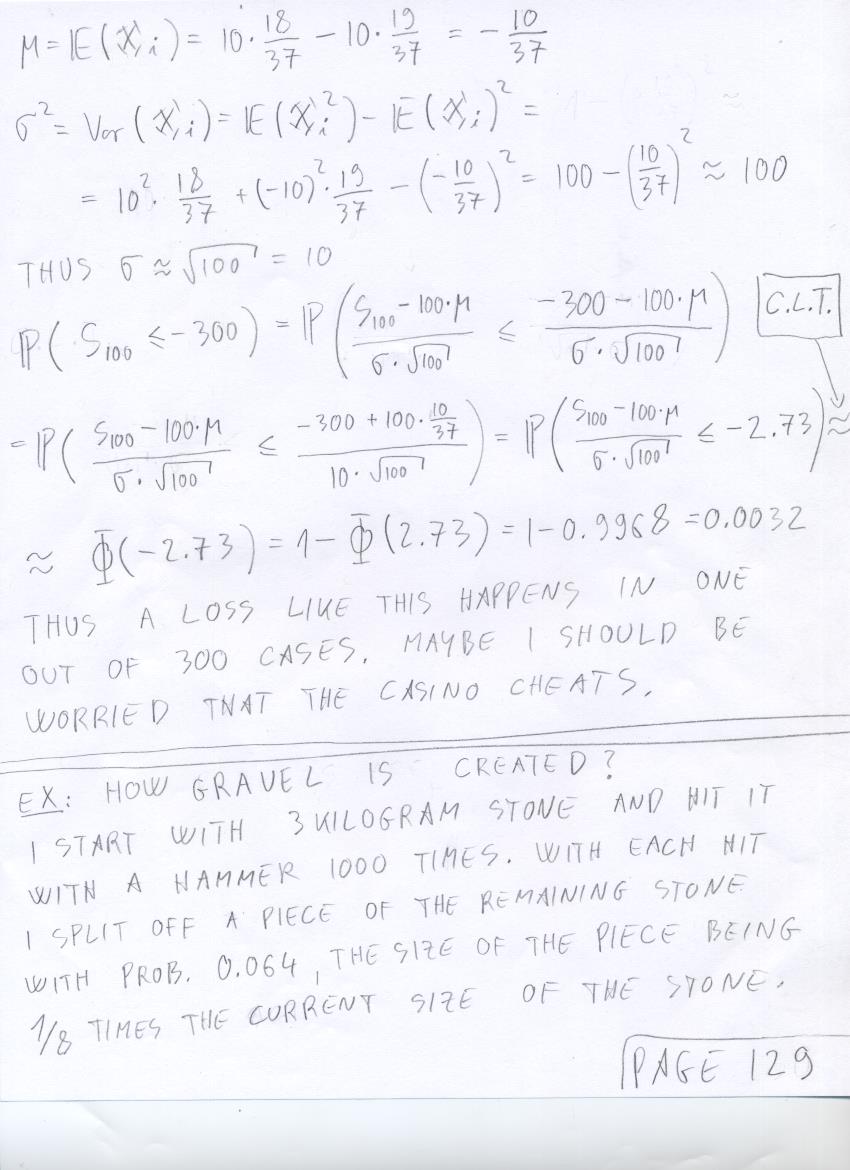 μ = 𝔼(X_i) = 10·18/37 − 10·19/37 = −10/37
σ² = Var(X_i) = 𝔼(X_i²) − 𝔼(X_i)² =
= 10²·18/37 + (−10)²·19/37 − (−10/37)² = 100 − (10/37)² ≈ 100
THUS σ ≈ √100 = 10
ℙ(S₁₀₀ ≤ −300) = ℙ((S₁₀₀ − 100·μ)/(σ·√100) ≤ (−300 − 100·μ)/(σ·√100))
C.L.T.
= ℙ((S₁₀₀ − 100·μ)/(σ·√100) ≤ (−300 + 100·10/37)/(10·√100)) = ℙ((S₁₀₀ − 100·μ)/(σ·√100) ≤ −2.73) ≈
≈ Φ(−2.73) = 1 − Φ(2.73) = 1 − 0.9968 = 0.0032
THUS A LOSS LIKE THIS HAPPENS IN ONE
OUT OF 300 CASES. MAYBE I SHOULD BE
WORRIED THAT THE CASINO CHEATS.
EX: HOW GRAVEL IS CREATED?
I START WITH 3 KILOGRAM STONE AND HIT IT
WITH A HAMMER 1000 TIMES. WITH EACH HIT
I SPLIT OFF A PIECE OF THE REMAINING STONE
WITH PROB. 0.064, THE SIZE OF THE PIECE BEING
1/8 TIMES THE CURRENT SIZE OF THE STONE.
PAGE 129